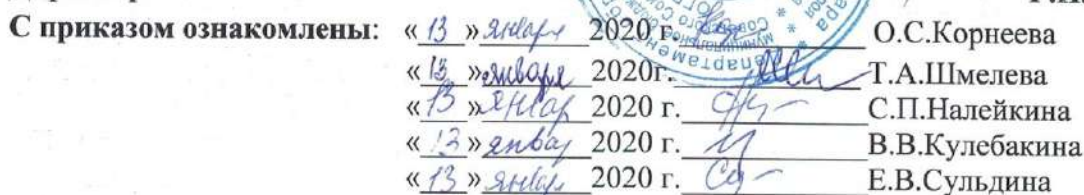 С приказом ознакомлены: «13» января 2020 г. О.С.Корнеева
«13» января 2020г. Т.А.Шмелева
«13» январ 2020 г. С.П.Налейкина
«13» январ 2020 г. В.В.Кулебакина
«13» январ 2020 г. Е.В.Сульдина